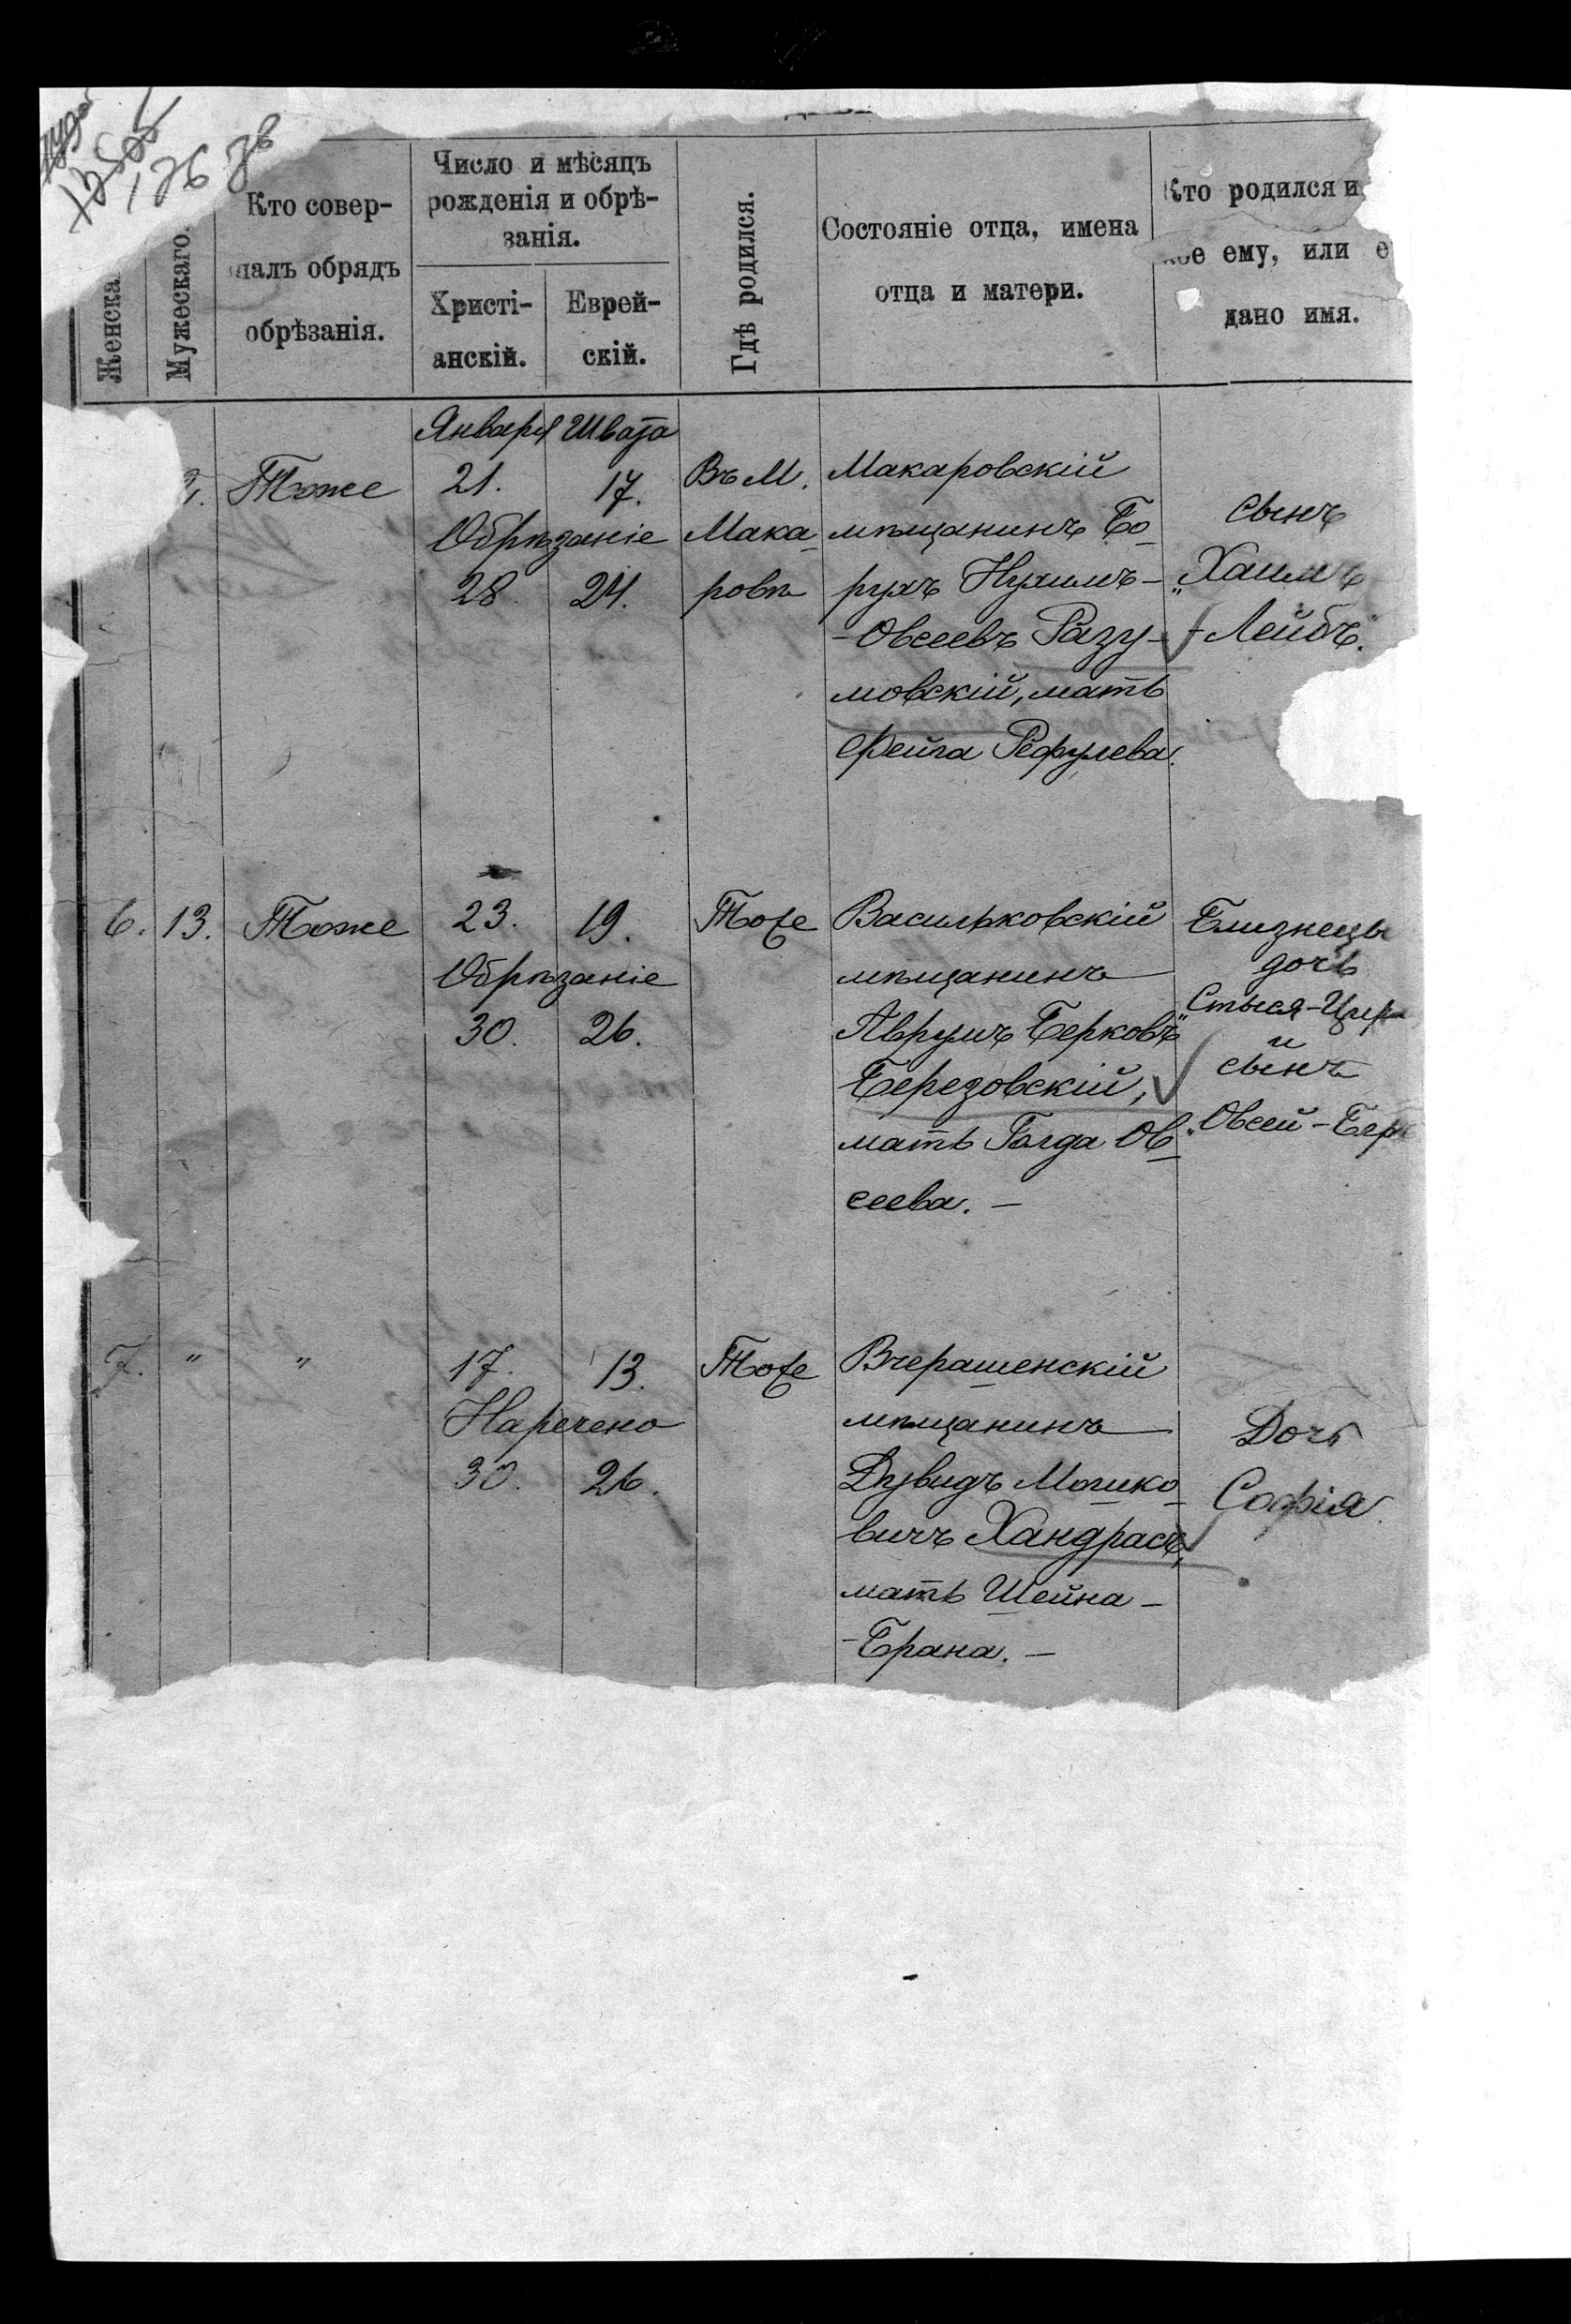 126 зв
Женска
Мужескаго.
Кто совер-
шалъ обрядъ
обрѣзанія.
Число и мѣсяцъ
рожденія и обрѣ-
занія.
Христі-
анскій.
Еврей-
скій.
Гдѣ родился.
Состояніе отца, имена
отца и матери.
Кто родился и
кое ему, или е
дано имя.
Января Швата
Тоже
21.
17.
Обрѣзаніе
28.
24.
Въ М.
Мака-
ровѣ
Макаровскій
мѣщанинъ Бо-
рухъ Нухимъ-
-Овсеевъ Разу-
мовскій, мать
Фейга Рефулева.
Сынъ
„Хаимъ
-Лейбъ."
6. 13. Тоже
23.
19.
Обрѣзаніе
30.
26.
Тоже
Васильковскій
мѣщанинъ
Аврумъ Берковъ
Березовскій,
мать Голда Ов-
сеева. -
Близнецы
дочь
„Стыся-Цир
и
сынъ
„Овсей-Бер
7. " "
17.
13.
Наречено
30.
26.
Тоже
Вчерашенскій
мѣщанинъ
Дувидъ Мошко-
вичъ Хандрасъ,
мать Шейна-
-Брана. -
Дочь
Софія.